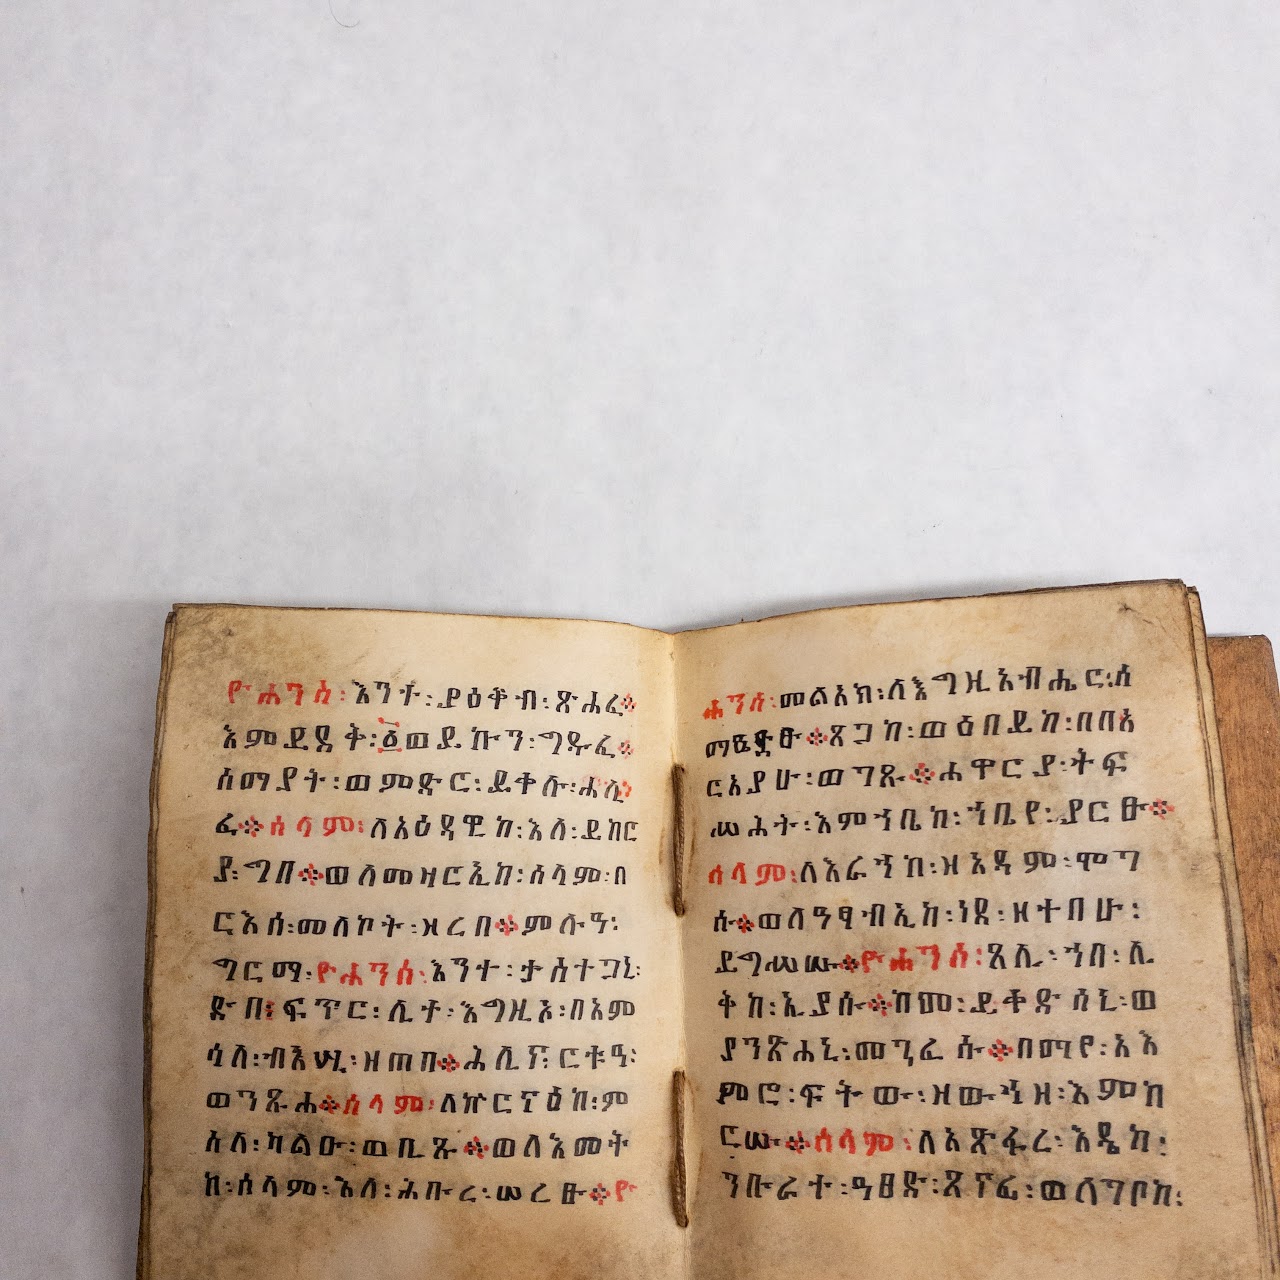 ዮሐንስ፡እንተ፡ያዕቆብ፡ጽሐፈ፨
እምደደቅ፡፩ወደይኩን፡ግዱፈ፨
ሰማያት፡ወምድር፡ይቀሱ፡
ፈ፨ሰላም፡ለአዕዳዊከ፡እለ፡ይከር
ያ፡ግበ፨ወለመዛርኢከ፡ሰላም፡በ
ርእሰ፡መለኮት፡ዝረበ፨ምሉዓ፡
ግርማ፡ዮሐንስ፡እንተ፡ታስተጋኒ፡
ድበ፡ፍጥር፡ሊተ፡እግዚኦ፡በአም
ሳለ፡ብእሢ፡ዘጠበ፨ሕሊፕ፡ርቱዓ፡
ወንጹሐ፨ሰላም፡ለኵርናዕከ፡ም
አለ፡ካልዑ፡ዘቢጹ፨ወለእመት
ከ፡ሰላም፡እለ፡ሕቡረ፡ሠረፀ፨ዮ
ሐንስ፡መልአክ፡ለእግዚአብሔር፡ሰ
፨ጸጋከ፡ወዕበይከ፡በበአ
ርአያሁ፡ወገጹ፨ሐዋርያ፡ትፍ
ሥሕት፡እምኀቤከ፡ኀቤየ፡ያርፁ፨
ሰላም፡ለእራኅከ፡ዝአዳም፡ሞገ
ሱ፨ወለዓፃብኢከ፡ነደ፡ዘተበሁ፡
ይግሠሡ፨ዮሐንስ፡ጸሊ፡ኀበ፡ሊ
ቅከ፡ኢያሱ፨ከመ፡ይቆድሰኒ፡ወ
ያንጽሐኒ፡መንፈሱ፨በማየ፡አእ
ምሮ፡ፍትው፡ዝውኅዘ፡እምከ
ርሡ፨ሰላም፡ለአጽፋረ፡እዴከ፡
ንቡራተ፡ዓፀድ፡ጸናፊ፡ወለግቦከ፡